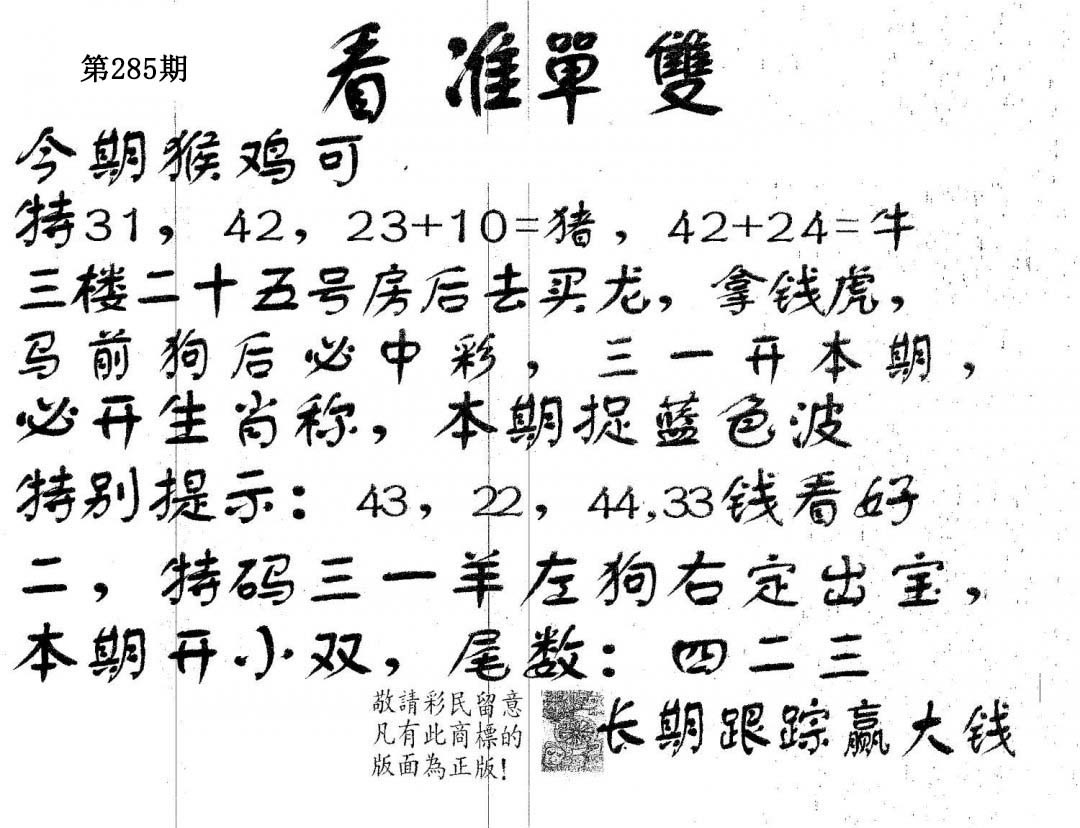 第285期
看准單雙
今期猴鸡可
特31，42，23+10=猪，42+24=牛
三楼二十五号房后去买龙，拿钱虎，
马前狗后必中彩，三一开本期，
必开生肖称，本期捉蓝色波
特别提示：43，22，44,33钱看好
二，特码三一羊左狗右定出宝，
本期开小双，尾数：四二三
敬請彩民留意
凡有此商標的
版面為正版！
长期跟踪赢大钱